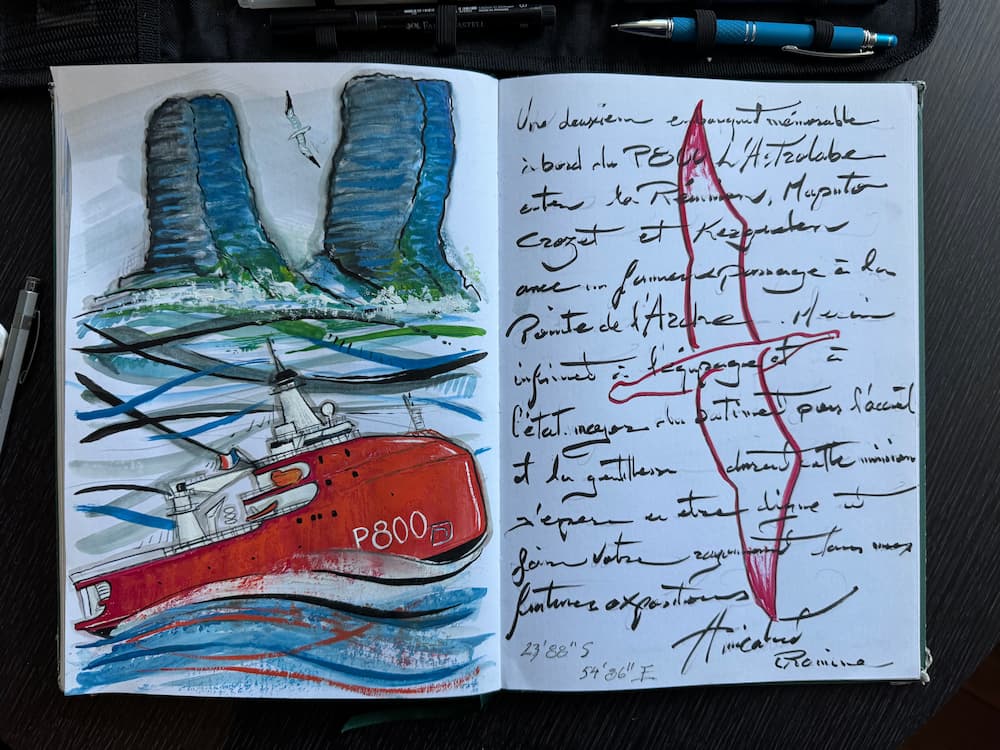 FABER-CASTELL
P800
Une deuxième embarquement mémorable
à bord du P800 L'Astrolabe
entre la Réunion, Maputo
Crozet et Kerguelen
avec un passage à la
Pointe de l'Arche. Merci
infiniment à l'équipage et à
l'état major du bâtiment pour l'accueil
et la gentillesse durant cette mission
j'espère en être digne et
faire votre rayonnement dans mes
futures expositions
Amicalement
Romina
23'88"S
54'86"E